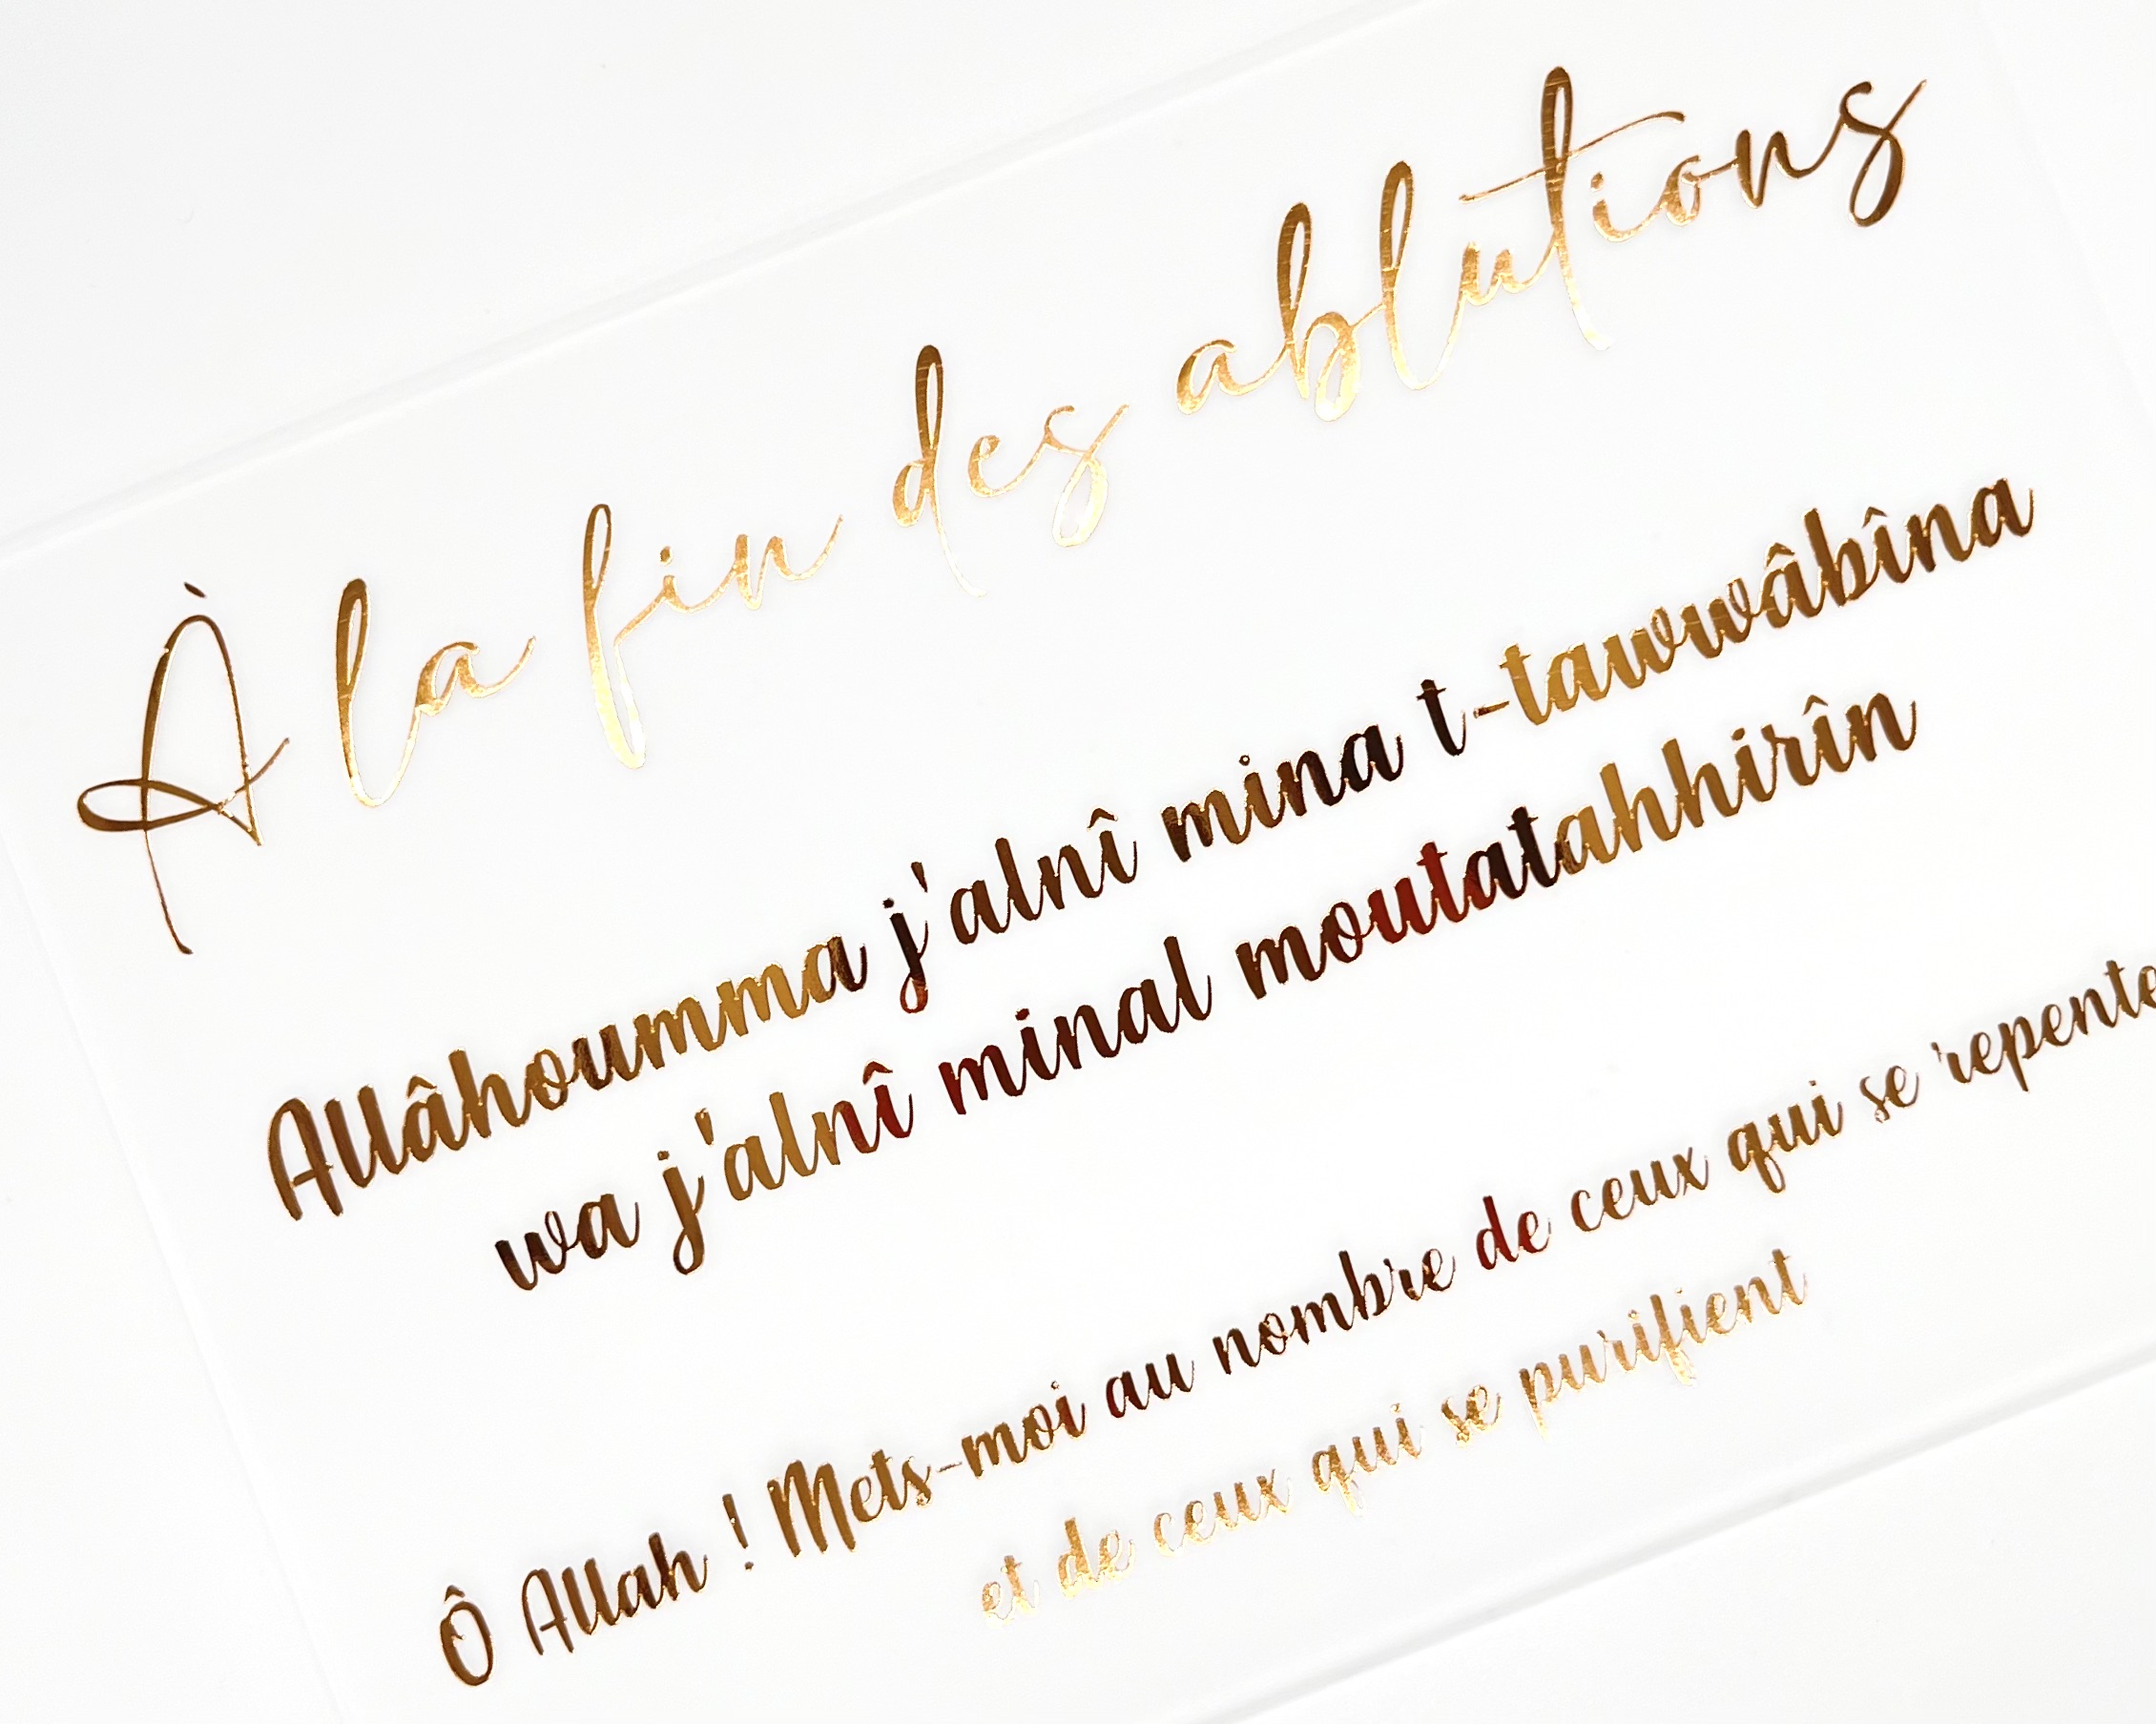 À la fin des ablutions
Allâhoumma j'alnî mina t-tawwâbîna
wa j'alnî minal moutatahhirîn
Ô Allah ! Mets-moi au nombre de ceux qui se
et de ceux qui se purifient